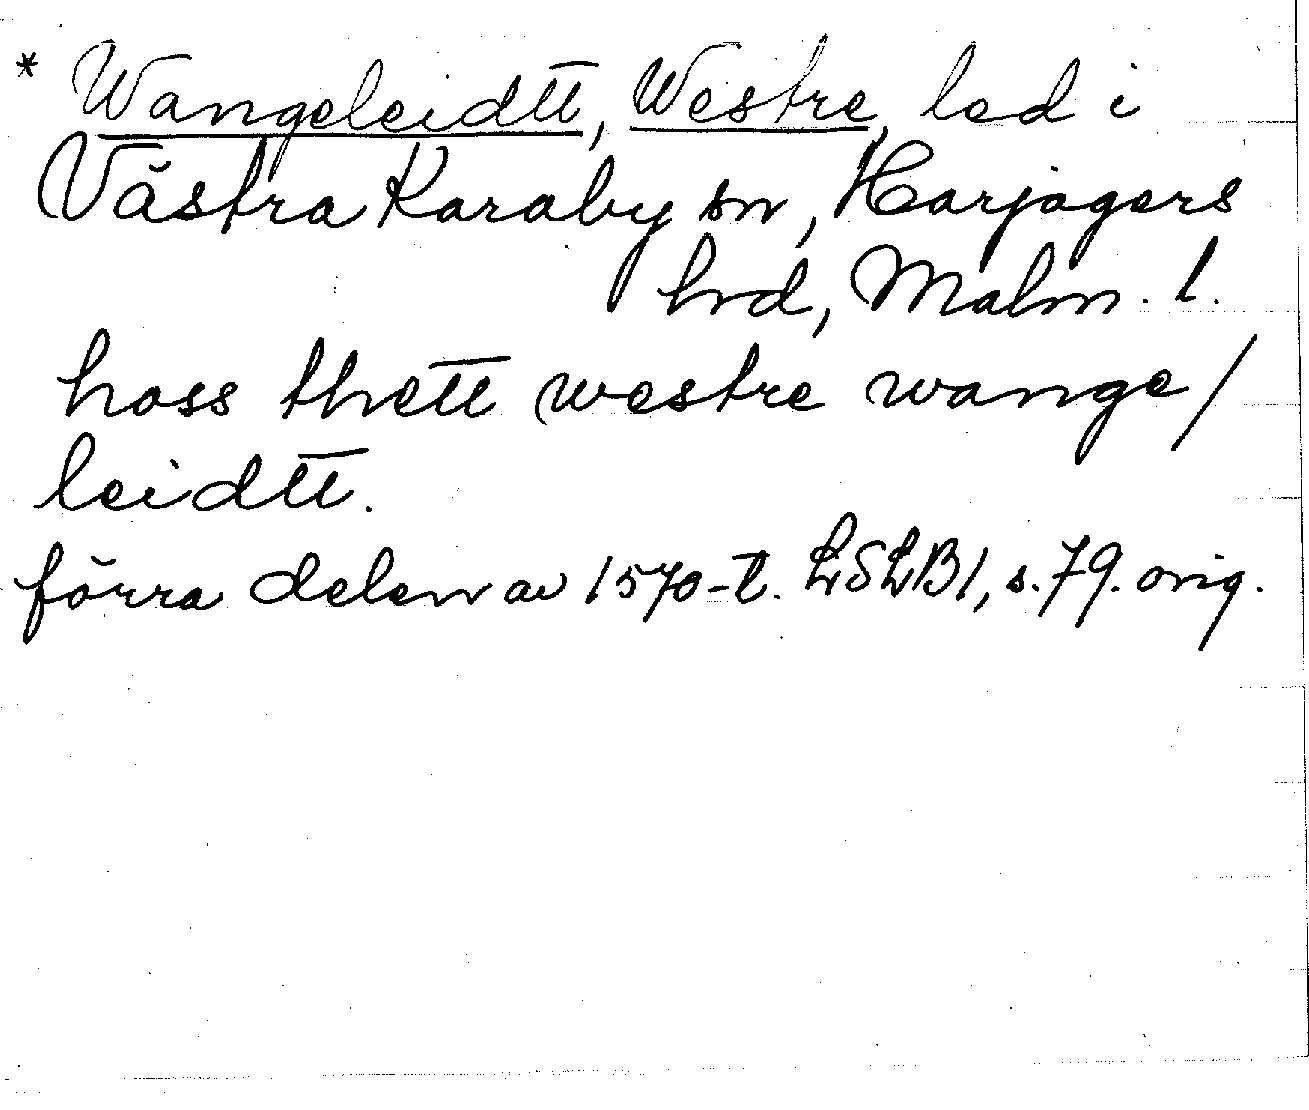 * Wangeleidtt, Westre, led i
Västra Karaby sn, Harjagers
hrd, Malm. l.
hoss thett westre wange/
leidtt.
förra delen av 1570-t. LSLB1, s. 79. orig.